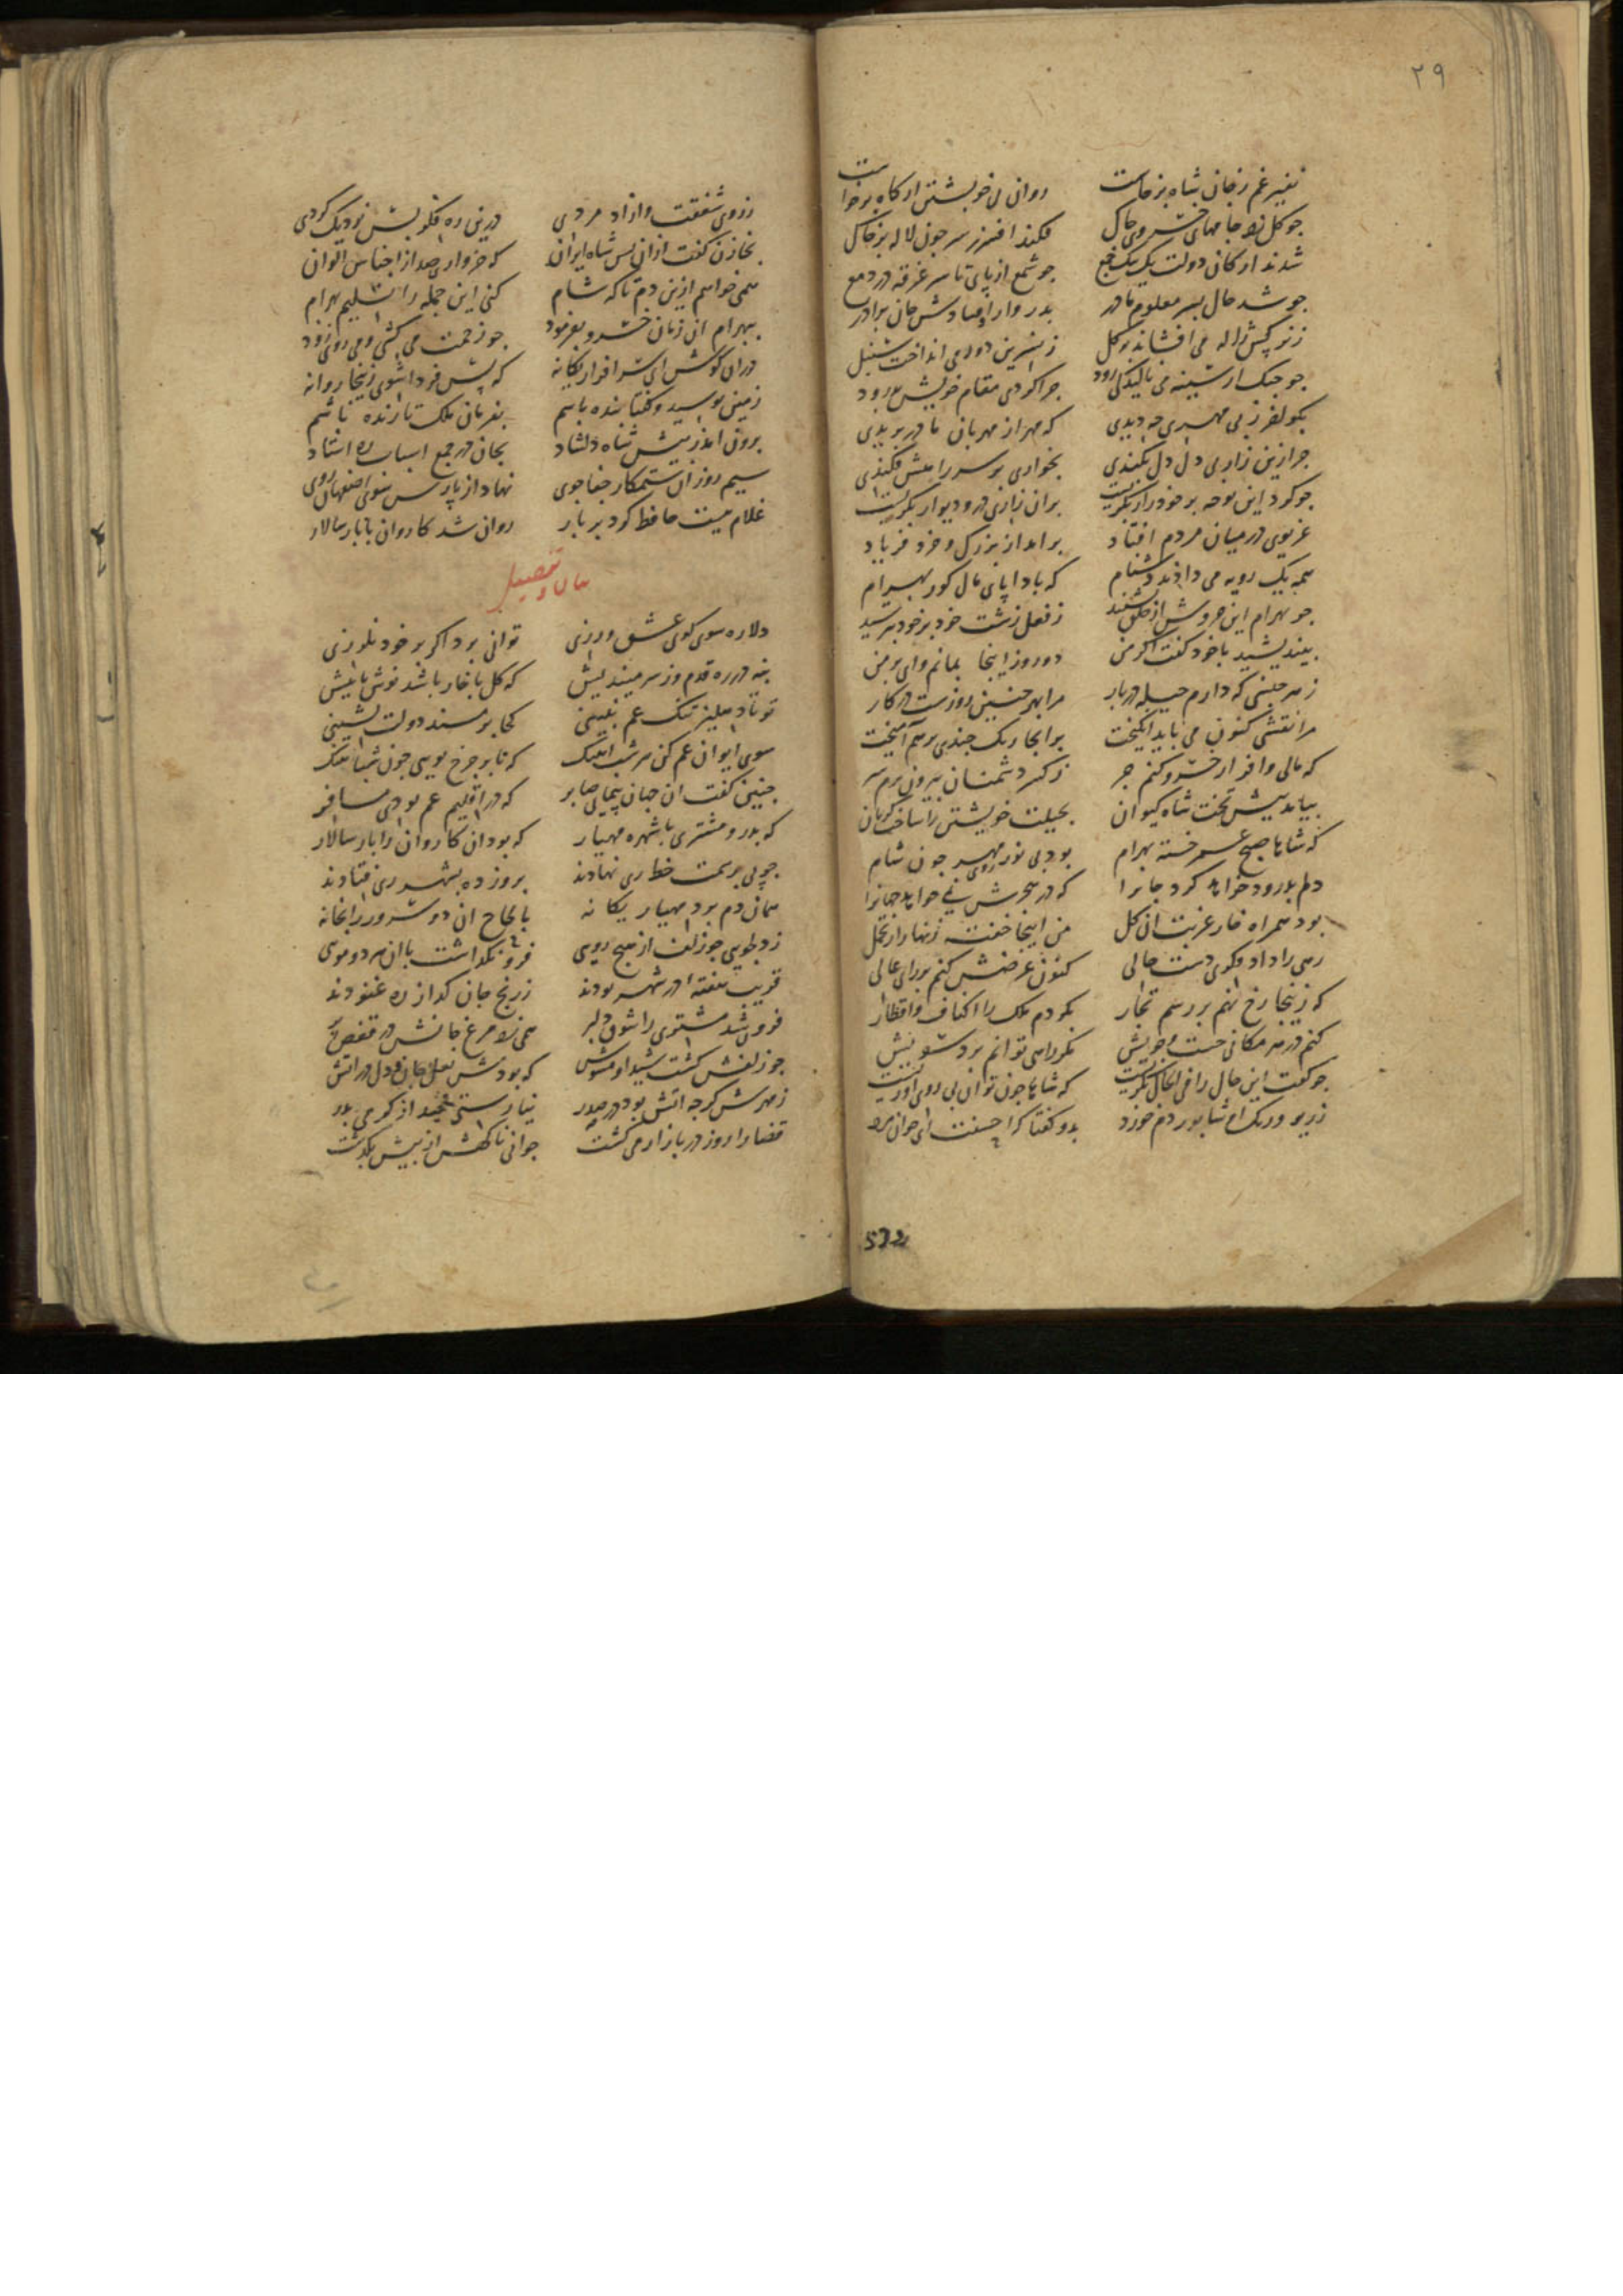 ۲۹
نفیر غم ز جان شاه برخاست روان بی خویشتن از گاه برخاست
جو کل زد جامهای خسروی جاک فکند افسر ز سر جون لاله بر خاک
شدند ارکان دولت یک بیک جمع جو شمع از پای تا سر غرقه در دمع
جو شد حال پسر معلوم مادر
ز نرکس ژاله می افشاند بر کل ز نسرین دور می انداخت سنبل
جو جنک از سینه می نالید کای رود جرا کردی مقام خویش بدرود
بکو اخر ز بی مهری جه دیدی که مهر از مهربان مادر بریدی
جرا زین زار بی دل دل بکندی بخواری بر سر راهش فکندی
جو کرد این نوحه بر خود زار بکریست بران زاری در و دیوار بکریست
غریوی در میان مردم افتاد بر امد از بزرک و خرد فریاد
همه یک رویه می دادند دشنام که بادا پای مال کور بهرام
جو بهرام این خروش از خلق بشنید ز فعل زشت خود بر خود بترسید
بیندیشید با خود کفت اکر من دو روز اینجا بمانم وای بر من
ز هر جنسی که دارم حیله در بار مرا بهر جنین روزست در کار
مرا نقشی کنون می باید انکیخت بر اینجا رنک جندی بر هم آمیخت
که مالی وافر از خسرو کنم جر ز کید دشمنان بیرون برم سر
بیامد پیش تخت شاه کیوان بحیلت خویشتن را ساخت کریان
که شاها صبح عمر خسته بهرام بود بی نور روی مهر جون شام
دلم بدرود خواهد کرد جانرا که در هجرش نمی خواهد جهانرا
بود همراه خار غربت ان کل من اینجا خفته زنهار از تحمل
رهی را داد دکوی دست حالی کنون عرضش کنم بر رای عالی
که زینجا رخ نهم بر رسم تجار بکردم ملک را اکناف و اقطار
کنم در هر مکانی جست و جویش مکر راهی توانم برد سویش
جو کفت این حال را فی الحال بکریست که شاها جون توان بی روی او زیست
ز ریو و رنک او شابور دم خورد بدو کفتا که احسنت ای جوان مرد
532
ز روی شفقت و ازاد مردی درین ره فکر بس نزدیک کردی
بخازن کفت ازان پس شاه ایران که خرواری صد از اجناس الوان
همی خواهم ازین دم تا که شام کنی این جمله را تسلیم بهرام
ببهرام ان زمان خسرو بفرمود جو زحمت می کشی و می روی زود
که پس فردا شوی زینجا روانه
زمین بوسید و کفتا بنده باشم بفرمان ملک تا زنده باشم
برون امد ز پیش شاه دلشاد بجان در جمع اسباب ره استاد
سیم روز ان ستمکار جفا جوی نهاد از پارس سوی اصفهان روی
غلام میت حافظ کرد بر بار روان شد کاروان با بار سالار
دلا ره سوی کوی عشق ورزی توانی برد اکر بر خود نلرزی
بنه در ره قدم وز سر میندیش که کل با خار باشد نوش با نیش
تو تا دهلیز تنک غم نبینی کجا بر مسند دولت نشینی
سوی ایوان غم کن سر شب اهنک که تا بر جرخ بویی جون شباهنک
جنین کفت ان جهان پیمای صابر که در اقلیم غم بودی مسافر
که بدر و مشتری با شهره مهیار که بود ان کاروان را بار سالار
جو پی بر سمت خط ری نهادند بروز ده بشهر ری فتادند
همان دم برد مهیار یکانه بالحاح ان دو سرور را بخانه
ز دلجویی جو زلف از هیج رویی فرو نکذاشت با ان هر دو مویی
قریب هفته در شهر بودند ز رنج جان کداز ره غنودند
فزون شد مشتری را شوق دلبر همی زد مرغ جانش در قفص پر
جو زلفش کشت شیدا و مشوش که بودش نعل جان و دل در اتش
ز مهرش کرجه اتش بود در صدر نیارستی خمید از کرمی بدر
قضا را روز در بازار می کشت جوانی ناکهش از پیش بکذشت